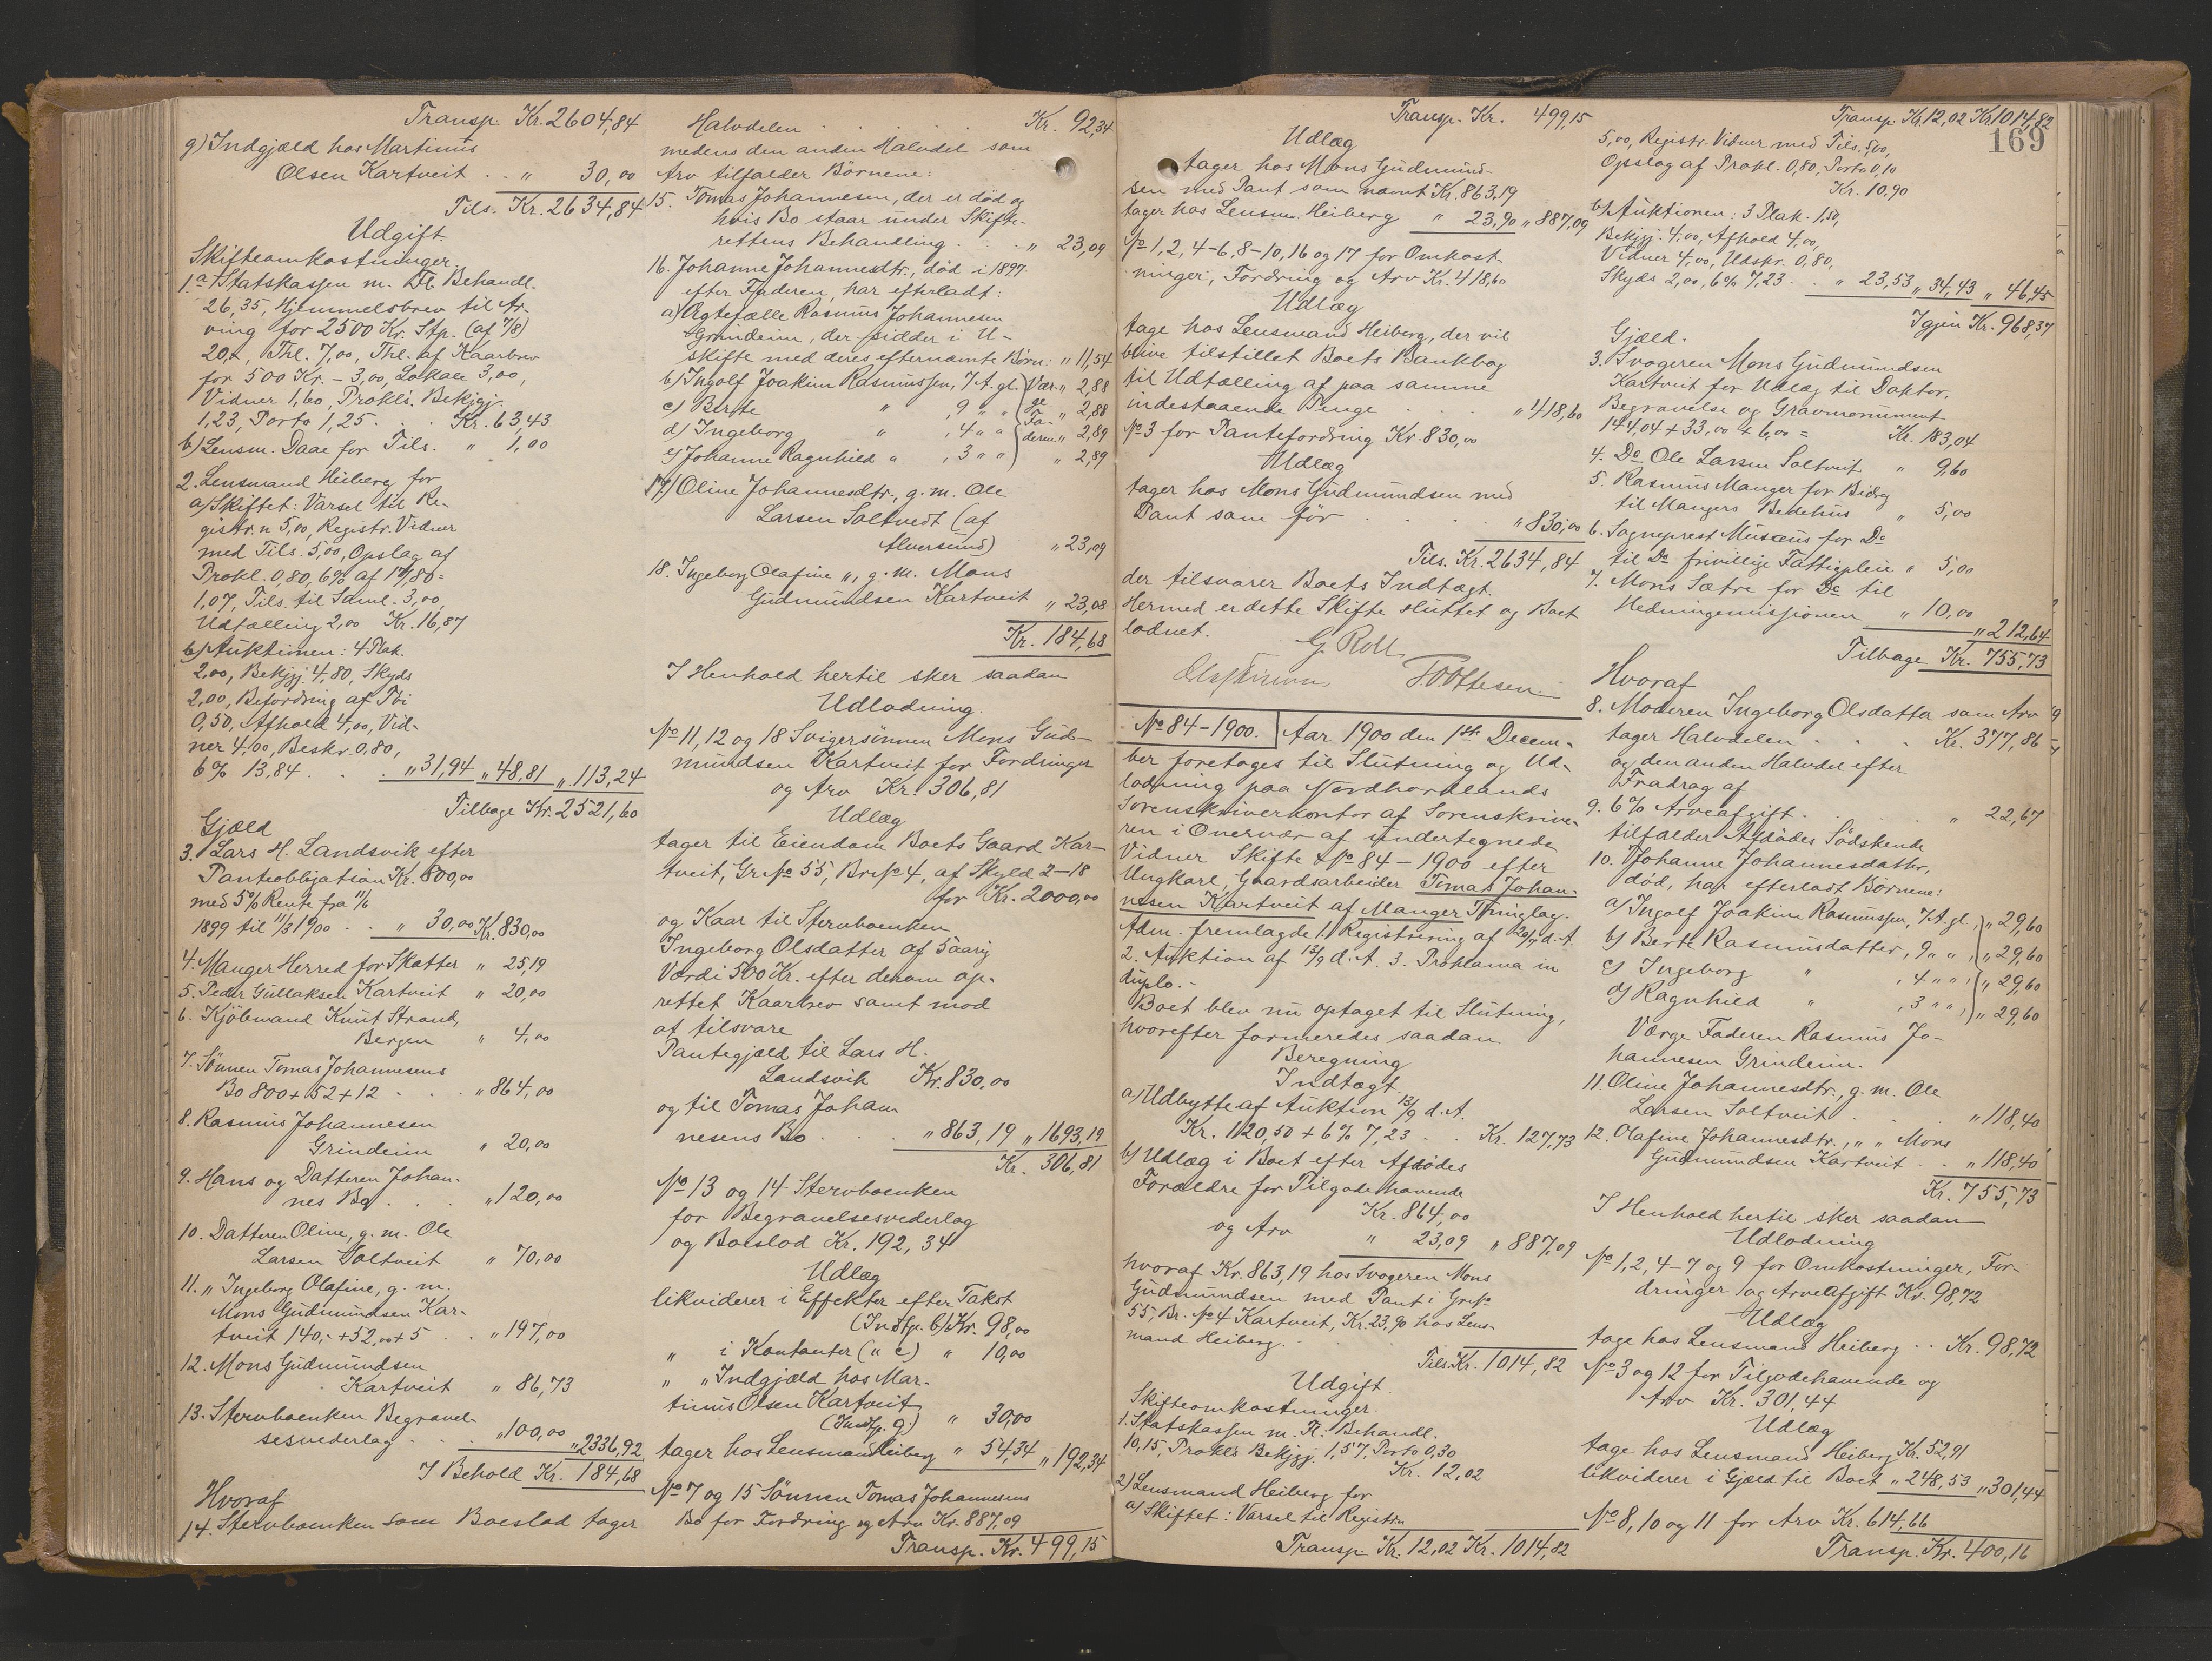 Transp. Kr. 2604,84
g) Indgjæld hos Martinus
Olsen Kartveit . . " 30,00
Tils. Kr. 2634,84
Udgift.
Skifteomkostninger.
1. a) Statskassen m. Fl. Behandl.
26,35, Hjemmelsbrev til Ar-
ving for 2500 Kr. Stp. (af 7/8)
20,-, Thl. 7,00, Thl. af Kaarbrev
for 500 Kr. - 3,00, Lokale 3,00,
Vidner 1,60, Prokl's Bekjgj.
1,23, Porto 1,25 . . Kr. 63,43
b) Lensm. Daae for Tils. " 1,00
2. Lensmand Heiberg for
a) Skiftet: Varsel til Re-
gistr.n 5,00, Registr. Vidner
med Tils. 5,00, Opslag af
Prokl. 0,80, 6% af 17,80 =
1,07, Tils. til Saml. 3,00,
Udtælling 2,00 Kr. 16,87
b) Auktionen: 4 Plak.
2,00, Bekjgj. 4,80, Skyds
2,00, Befordring af Do i
0,50, Afhold 4,00, Vid-
ner 4,00, Beskr. 0,80,
6% 13,84 . . . " 31,94 " 48,81 " 113,24
Tilbage Kr. 2521,60
Gjæld
3. Lars H. Landsvik efter
Panteobligation Kr. 800,00
med 5% Rente fra 11/6
1899 til 11/3 1900 . . " 30,00 Kr. 830,00
4. Manger Herred for Skatter " 25,19
5. Peder Gullaksen Kartveit " 20,00
6. Kjöbmand Knut Strand,
Bergen " 4,00
7. Sönnen Tomas Johannesens
Bo 800 + 52 + 12 . . . " 864,00
8. Rasmus Johannesen
Grindeim " 20,00
9. Hans og Datteren Johan-
nes Bo . . . " 120,00
10. Datteren Oline, g. m. Ole
Larsen Soltveit " 70,00
11. " Ingeborg Olafine, g. m.
Mons Gudmundsen Kar-
tveit 140,- + 52,00 + 5 . . " 197,00
12. Mons Gudmundsen
Kartveit " 86,73
13. Stervboenken Begravel-
sesvederlag . . . " 100,00 " 2336,92
I Behold Kr. 184,68
Hvoraf
14. Stervboenken som Boeslod tager
Halvdelen . . . . . Kr. 92,34
medens den anden Halvdel som
Arv tilfalder Börnene:
15. Tomas Johannesen, der er död og
hvis Bo staar under Skifte-
rettens Behandling . . . " 23,09
16. Johanne Johannesdtr., död i 1897
efter Faderen, har efterladt:
a) Ægtefælle Rasmus Johannesen
Grindeim, der sidder i U-
skifte med deres efternævnte Börn: " 11,54
b) Ingolf Joakim Rasmussen, 7 A. gl. Vær- " 2,88
c) Berte " , 9 " " ge " 2,88
d) Ingeborg " , 4 " " Fa- " 2,89
e) Johanne Ragnhild " , 3 " " deren " 2,89
17) Oline Johannesdtr., g. m. Ole
Larsen Soltvedt (af
Alversund) " 23,09
18. Ingeborg Olafine ", g. m. Mons
Gudmundsen Kartveit " 23,08
Kr. 184,68
I Henhold hertil sker saadan
Udlodning.
No 11, 12 og 18 Svigersönnen Mons Gud-
mundsen Kartveit for Fordringer
og Arv Kr. 306,81
Udlæg
tager til Eiendom Boets Gaard Kar-
tveit, Gr No 55, Br No 4, af Skyld 2-18
for Kr. 2000,00
og Kaar til Stervboenken
Ingeborg Olsdatter af 5 aarig
Værdi 500 Kr. efter derom op-
rettet Kaarbrev samt mod
at tilsvare
Pantegjæld til Lars H.
Landsvik Kr. 830,00
og til Tomas Johan-
nesens Bo . . . " 863,19 " 1693,19
Kr. 306,81
No 13 og 14 Stervboenken
for Begravelsesvederlag
og Boeslod Kr. 192,34
Udlæg
likviderer i Effekter efter Takst
(Indtp. b) Kr. 98,00
" i Kontanter (" c) " 10,00
" " Indgjæld hos Mar-
tinus Olsen Kartveit
(Indtp. g) " 30,00
tager hos Lensmand Heiberg " 54,34 " 192,34
No 7 og 15 Sönnen Tomas Johannesens
Bo for Fordring og Arv Kr. 887,09
Transp. Kr. 499,15
Transp. Kr. 499,15
Udlæg
tager hos Mons Gudmund-
sen med Pant som nævnt Kr. 863,19
tager hos Lensm. Heiberg " 23,90 " 887,09
No 1, 2, 4-6, 8-10, 16 og 17 for Omkost-
ninger, Fordring og Arv Kr. 418,60
Udlæg
tage hos Lensmand Heiberg, der vil
blive tilstillet Boets Bankbog
til Udtælling af paa samme
indestaaende Penge . . . " 418,60
No 3 for Pantefordring Kr. 830,00
Udlæg
tager hos Mons Gudmundsen med
Pant som för . . . . " 830,00
Tils. Kr. 2634,84
der tilsvarer Boets Indtægt.
Hermed er dette Skifte sluttet og Boet
lodnet.
G Roll
T. Ottesen
No 84-1900. Aar 1900 den 1ste Decem-
ber foretoges til Slutning og Ud-
lodning paa Nordhordlands
Sorenskriverkontor af Sorenskrive-
ren i Overvær af undertegnede
Vidner Skifte No 84-1900 efter
Ungkarl, Gaardsarbeider Tomas Johan-
nesen Kartveit af Manger Thinglag.
Adm. fremlagde 1. Registrering af 20/7 d. A.
2. Auktion af 13/9 d. A. 3. Proklama in
duplo. -
Boet blev nu optaget til Slutning,
hvorefter formeredes saadan
Beregning
Indtægt.
a) Udbytte af Auktion 13/9 d. A.
Kr. 120,50 + 6% 7,23 . . Kr. 127,73
b) Udlæg i Boet efter Afdödes
Forældre for Tilgodehavende
Kr. 864,00
og Arv " 23,09 " 887,09
hvoraf Kr. 863,19 hos Svogeren Mons
Gudmundsen med Pant i Gr No
55, Br. No 4 Kartveit, Kr. 23,90 hos Lens-
mand Heiberg.
Tils. Kr. 1014,82
Udgift.
Skifteomkostninger.
1. Statskassen m. Fl. Behandl.
10,15, Prokl's Bekjgj. 1,57, Porto 0,30
Kr. 12,02
2) Lensmand Heiberg for
a) Skiftet: Varsel til Registr.n
Transp. Kr. 12,02 Kr. 1014,82
Transp. Kr. 12,02 Kr. 1014,82
169
5,00, Registr. Vidner med Tils. 5,00,
Opslag af Prokl. 0,80, Porto 0,10
Kr. 10,90
b) Auktionen: 3 Plak. 1,50,
Bekjgj. 4,00, Afhold 4,00,
Vidner 4,00, Udskr. 0,80,
Skyds 2,00, 6% 7,23 . . " 23,53 " 34,43 " 46,45
Igjen Kr. 968,37
Gjæld.
3. Svogeren Mons Gudmundsen
Kartveit for Udlæg til Doktor,
Begravelse og Gravmonument
144,04 + 33,00 + 6,00 = Kr. 183,04
4. Do Ole Larsen Soltveit " 9,60
5. Rasmus Manger for Bidrag
til Mangers Bedehus " 5,00
6. Sogneprest Musæus for Do
til Do frivillige Fattigpleie " 5,00
7. Mons Sætre for Do til
Hedningemissionen " 10,00
" 212,64
Tilbage Kr. 755,73
Hvoraf
8. Moderen Ingeborg Olsdatter som Arv
tager Halvdelen . . . Kr. 377,86
og den anden Halvdel efter
Fradrag af
9. 6% Arveafgift . . . . " 22,67
tilfalder Afdödes Södskende
10. Johanne Johannesdatter,
död, har efterladt Börnene:
a) Ingolf Joakim Rasmussen, 7 A. gl., " 29,60
b) Berte Rasmusdatter, 9 " " , " 29,60
c) Ingeborg " , 4 " " , " 29,60
d) Ragnhild " , 3 " " , " 29,60
Værge Faderen Rasmus Jo-
hannesen Grindeim.
11. Oline Johannesdtr., g. m. Ole
Larsen Soltveit . . . " 118,40
12. Olafine Johannesdtr., " " Mons
Gudmundsen Kartveit . . " 118,40
Kr. 755,73
I Henhold hertil sker saadan
Udlodning
No 1, 2, 4-7 og 9 for Omkostninger, For-
dringer og Arveafgift Kr. 98,72
Udlæg
tage hos Lensmand Heiberg . . Kr. 98,72
No 3 og 12 for Tilgodehavende og
Arv Kr. 301,44
Udlæg
tage hos Lensmand Heiberg Kr. 52,91
likviderer i Gjæld til Boet " 248,53 " 301,44
No 8, 10 og 11 for Arv Kr. 614,66
Transp. Kr. 400,16